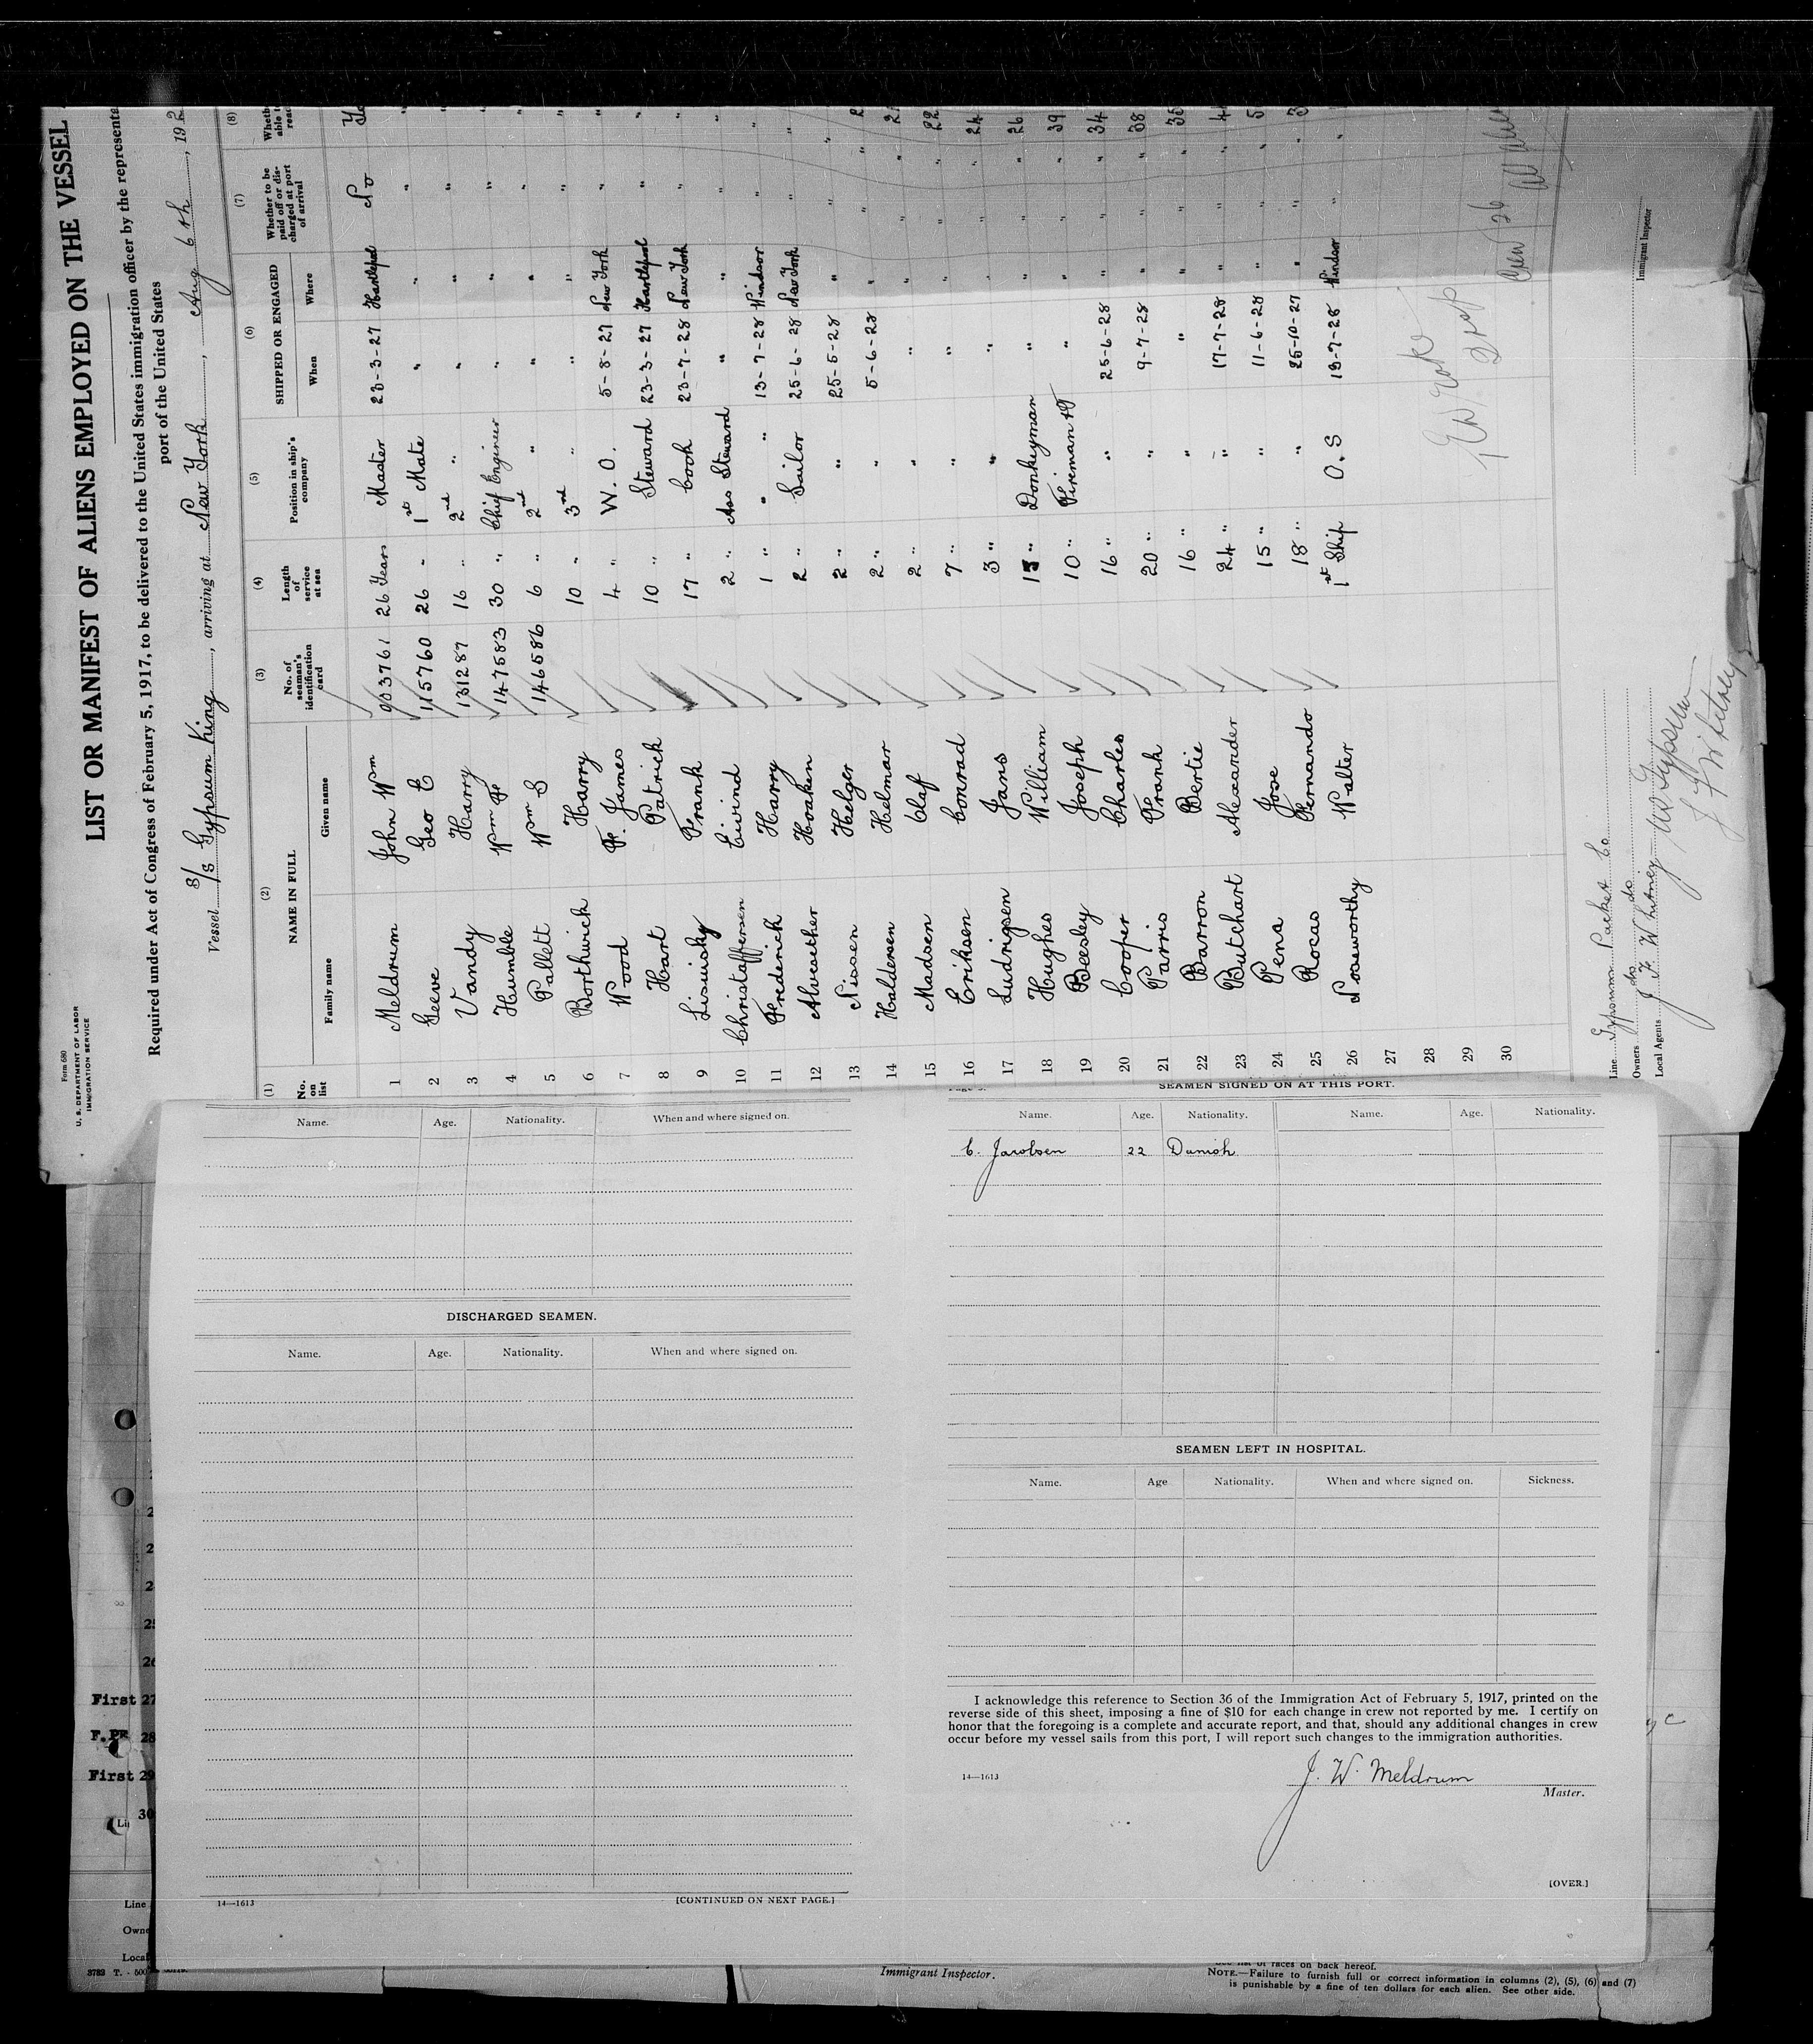 Form 680
U. S. DEPARTMENT OF LABOR
IMMIGRATION SERVICE
LIST OR MANIFEST OF ALIENS EMPLOYED ON THE VESSEL
Required under Act of Congress of February 5, 1917, to be delivered to the United States immigration officer by the representa
port of the United States
Vessel S/S Gypsum King, arriving at New York, Aug 6th, 192
(1) (2) (3) (4) (5) (6) (7) (8)
No. on list NAME IN FULL No. of seaman's identification card Length of service at sea Position in ship's company SHIPPED OR ENGAGED Whether to be paid off or discharged at port of arrival
Family name Given name When Where
1 Meldrum John Wm 903761 26 Years Master 23-3-27 Hartlepool No
2 Geeve Geo E 115760 26 " 1st Mate " " "
3 Vandy Harry 131287 16 " 2nd " " " "
4 Humble Wm F 147583 30 " Chief Engineer " " "
5 Pallett Wm S 146586 6 " 2nd " " " "
6 Borthwick Harry 10 " 3rd " " " "
7 Wood F. James 4 " W. O. 5-8-27 New York "
8 Hart Patrick 10 " Steward 23-3-27 Hartlepool "
9 Frank 17 " Cook 23-7-28 New York "
10 Christaffersen Eivind 2 " Ass Steward " " "
11 Frederick Harry 1 " " " 13-7-28 Windsor "
12 Alvesether Hoaken 2 " Sailor 25-6-28 New York "
13 Nissen Helger 2 " " 25-5-28 " "
14 Haldersen Helmar 2 " " 5-6-28 " "
15 Madsen Olaf 2 " " " " " 22
16 Eriksen Conrad 7 " " " " " 24
17 Ludrigsen Jans 3 " " " " " 26
18 Hughes William 15 " Donkeyman " " " 39
19 Beesley Joseph 10 " Fireman " " " 34
20 Cooper Charles 16 " " 25-6-28 " " 38
21 Parris Frank 20 " " 9-7-28 " " 35
22 Barron Bertie 16 " " " " "
23 Butchart Alexander 24 " " 17-7-28 " "
24 Pena Jose 15 " " 11-6-28 " "
25 Rocas Fernando 18 " " 25-10-27 " "
26 Noseworthy Walter 1st Ship O. S 13-7-28 Windsor "
27
28
29
30
Crew 26
Line Gypsum Packet Co
Owners do do
Local Agents J. F. Whitney
Immigrant Inspector
Name. Age. Nationality. When and where signed on.
DISCHARGED SEAMEN.
Name. Age. Nationality. When and where signed on.
14—1613
[CONTINUED ON NEXT PAGE.]
SEAMEN SIGNED ON AT THIS PORT.
Name. Age. Nationality. Name. Age. Nationality.
C. Jacobsen 22 Danish
SEAMEN LEFT IN HOSPITAL.
Name. Age Nationality. When and where signed on. Sickness.
I acknowledge this reference to Section 36 of the Immigration Act of February 5, 1917, printed on the
reverse side of this sheet, imposing a fine of $10 for each change in crew not reported by me. I certify on
honor that the foregoing is a complete and accurate report, and that, should any additional changes in crew
occur before my vessel sails from this port, I will report such changes to the immigration authorities.
14—1613
J. W. Meldrum
Master.
[OVER.]
First 27
28
First 29
30
Line
Owne
Local
Immigrant Inspector.
of races on back hereof.
NOTE.—Failure to furnish full or correct information in columns (2), (5), (6) and (7)
is punishable by a fine of ten dollars for each alien. See other side.